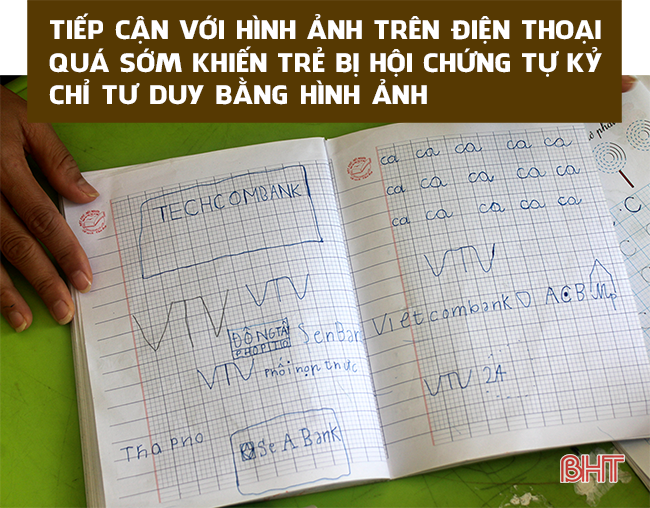 TIẾP CẬN VỚI HÌNH ẢNH TRÊN ĐIỆN THOẠI
QUÁ SỚM KHIẾN TRẺ BỊ HỘI CHỨNG TỰ KỶ
CHỈ TƯ DUY BẰNG HÌNH ẢNH
TECHCOMBANK
VTV
VTV
ĐÔNG TÂ
SenBan
VTV phối hợp thực
Thapho
SeABank
ca ca ca ca ca
ca ca ca ca ca
ca ca ca ca ca
VTV
Vietcombank ACB
VTV 24
BHT